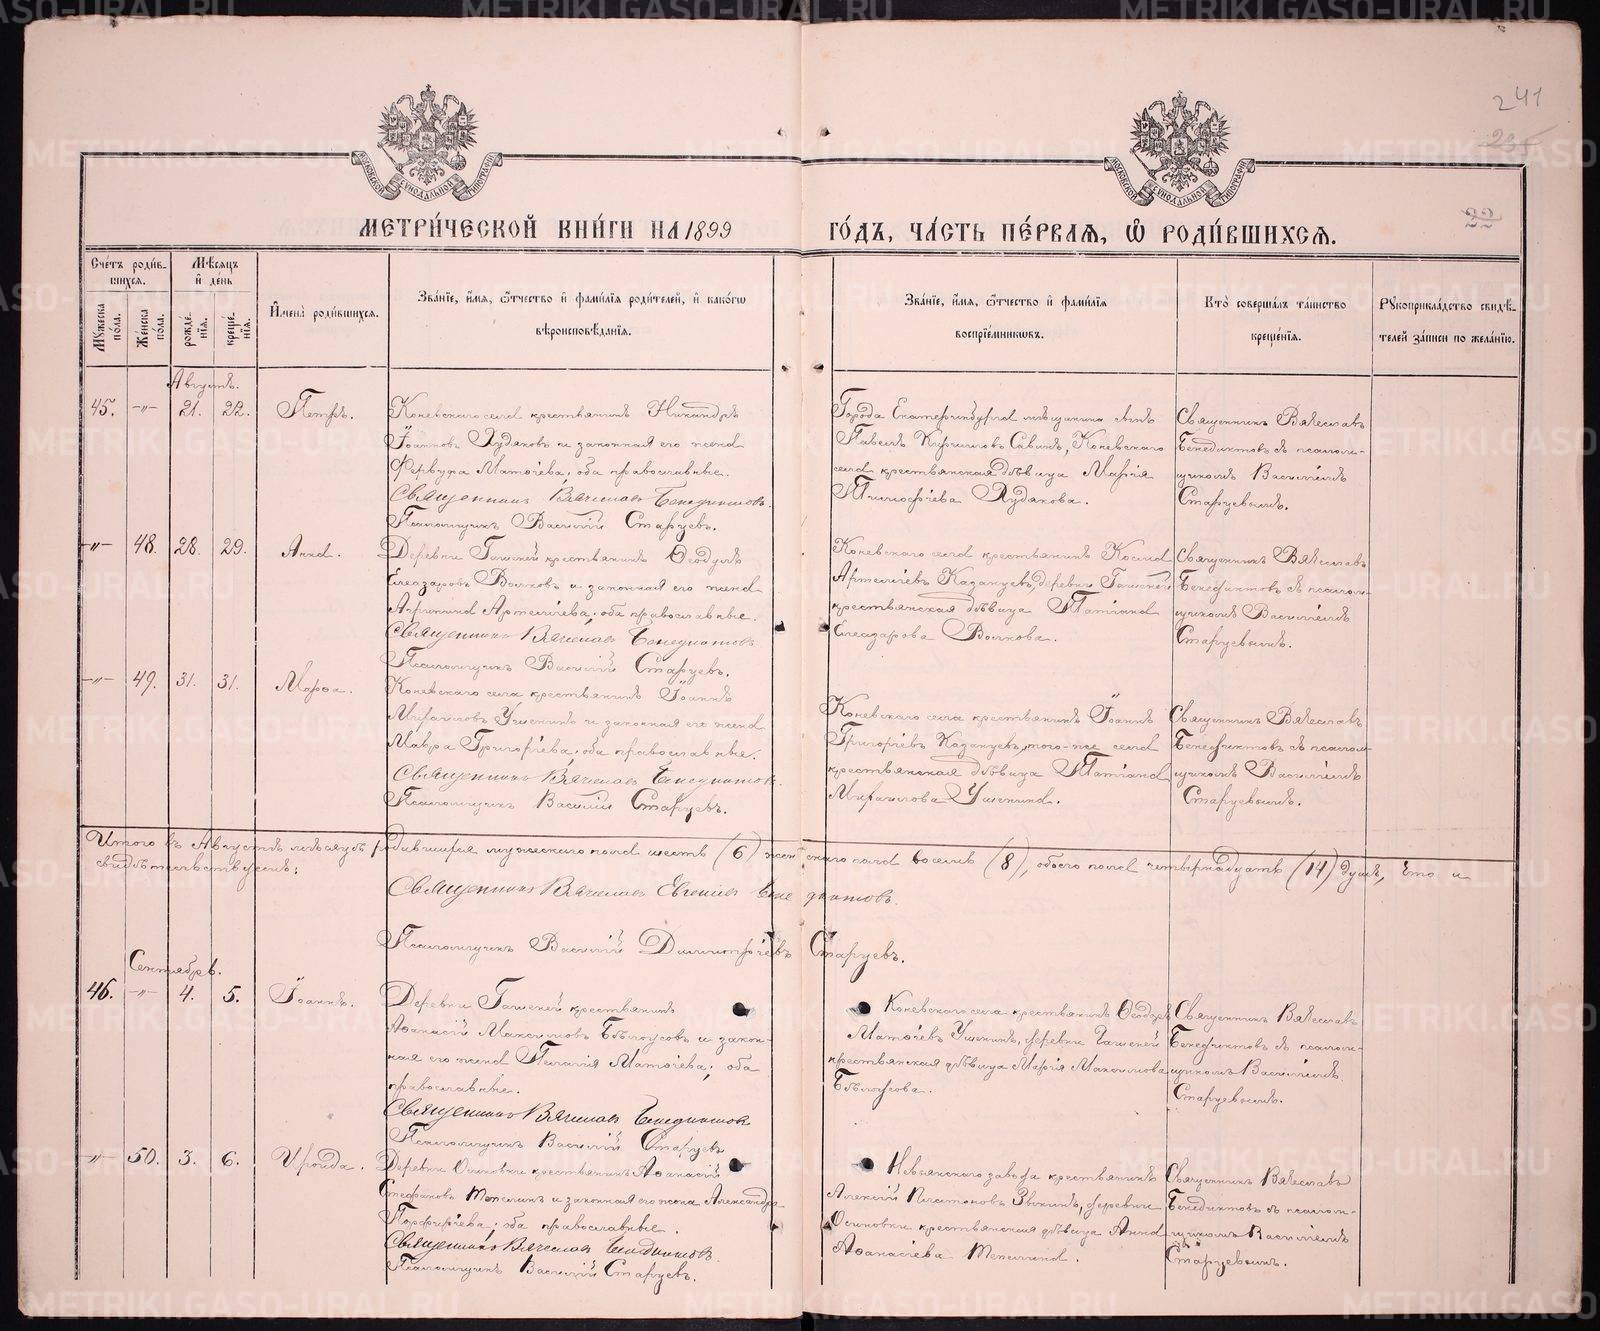 241
235
22
МОСКОВСКОЙ СѴНОДАЛЬНОЙ ТИПОГРАФІИ
МОСКОВСКОЙ СѴНОДАЛЬНОЙ ТИПОГРАФІИ
МЕТРИ́ЧЕСКОЙ КНИ́ГИ НА 1899 ГО́ДЪ, ЧА́СТЬ ПЕ́РВАѦ, Ѡ҆ РОДИ́ВШИХСѦ.
Сче́тъ роди́в-
шихсѧ.
Мꙋжеска по́ла.
Же́нска по́ла.
Мѣ́сѧцъ и҆ де́нь
рожде́нїѧ.
креще́нїѧ.
И҆мена̀ роди́вшихсѧ.
Зва́нїе, и҆́мѧ, ѻ҆́тчество и҆ фами́лїѧ роди́телей, и҆ како́гѡ
вѣроисповѣ́данїѧ.
Зва́нїе, и҆́мѧ, ѻ҆́тчество и҆ фами́лїѧ
воспрїе́мникѡвъ.
Кто̀ соверша́лъ та́инство
креще́нїѧ.
Рꙋкоприкла́дство свидѣ́-
телей за́писи по жела́нїю.
Августъ.
45. -"- 21. 22. Петръ.
Коневскаго села крестьянинъ Никандръ
Іоанновъ Худяковъ и законная его жена
Матѳіева, оба православные.
Священникъ Вячеславъ Бенедиктовъ.
Псаломщикъ Василій Старцевъ.
Города Екатеринбурга мѣщанинъ
Павелъ Кирилловъ Савинъ, Коневскаго
села крестьянская дѣвица Марія
Тимоѳеева Худякова.
Священникъ Вячеславъ
Бенедиктовъ съ псалом-
щикомъ Василіемъ
Старцевымъ.
-"- 48. 28. 29. Анна.
Деревни Гашеней крестьянинъ Ѳеодулъ
Елеазаровъ Волковъ и законная его жена
Агрипина Артеміева, оба православные.
Священникъ Вячеславъ Бенедиктовъ
Псаломщикъ Василій Старцевъ.
Коневскаго села крестьянинъ Косма
Артеміевъ Казанцевъ, деревни Гашеней
крестьянская дѣвица Татіана
Елеазарова Волкова.
Священникъ Вячеславъ
Бенедиктовъ съ псалом-
щикомъ Василіемъ
Старцевымъ.
-"- 49. 31. 31. Марѳа.
Коневскаго села крестьянинъ Іоаннъ
Михаиловъ Ушенинъ и законная его жена
Мавра Григоріева, оба православные.
Священникъ Вячеславъ Бенедиктовъ.
Псаломщикъ Василій Старцевъ.
Коневскаго села крестьянинъ Іоаннъ
Григоріевъ Казанцевъ, того-же села
крестьянская дѣвица Татіана
Михаилова Ушенина.
Священникъ Вячеславъ
Бенедиктовъ съ псалом-
щикомъ Василіемъ
Старцевымъ.
Итого въ Августѣ мѣсяцѣ родившихся мужескаго пола шесть (6) женскаго пола восемь (8), обоего пола четырнадцать (14) душъ, что и
свидѣтельствуемъ:
Священникъ Вячеславъ Евгеніевъ Бенедиктовъ.
Псаломщикъ Василій Димитріевъ Старцевъ.
Сентябрь.
46. -"- 4. 5. Іоаннъ.
Деревни Гашеней крестьянинъ
Аѳанасій Максимовъ Бѣлоусовъ и закон-
ная его жена Пелагія Матѳіева, оба
православные.
Священникъ Вячеславъ Бенедиктовъ
Псаломщикъ Василій Старцевъ
Коневскаго села крестьянинъ Ѳеодоръ
Матѳіевъ Ушенинъ, деревни Гашеней
крестьянская дѣвица Марія Максимова
Бѣлоусова.
Священникъ Вячеславъ
Бенедиктовъ съ псалом-
щикомъ Василіемъ
Старцевымъ.
-"- 50. 3. 6. Ираида.
Деревни Осиновки крестьянинъ Аѳанасій
Стефановъ Топсминъ и законная его жена Александра
Порфиріева, оба православные.
Священникъ Вячеславъ Бенедиктовъ.
Псаломщикъ Василій Старцевъ.
Невьянскаго завода крестьянинъ
Алексій Платоновъ Зыкинъ, деревни
Осиновки крестьянская дѣвица Анна
Аѳанасіева.
Священникъ Вячеславъ
Бенедиктовъ съ псалом-
щикомъ Василіемъ
Старцевымъ.
METRIKI.GASO-URAL.RU